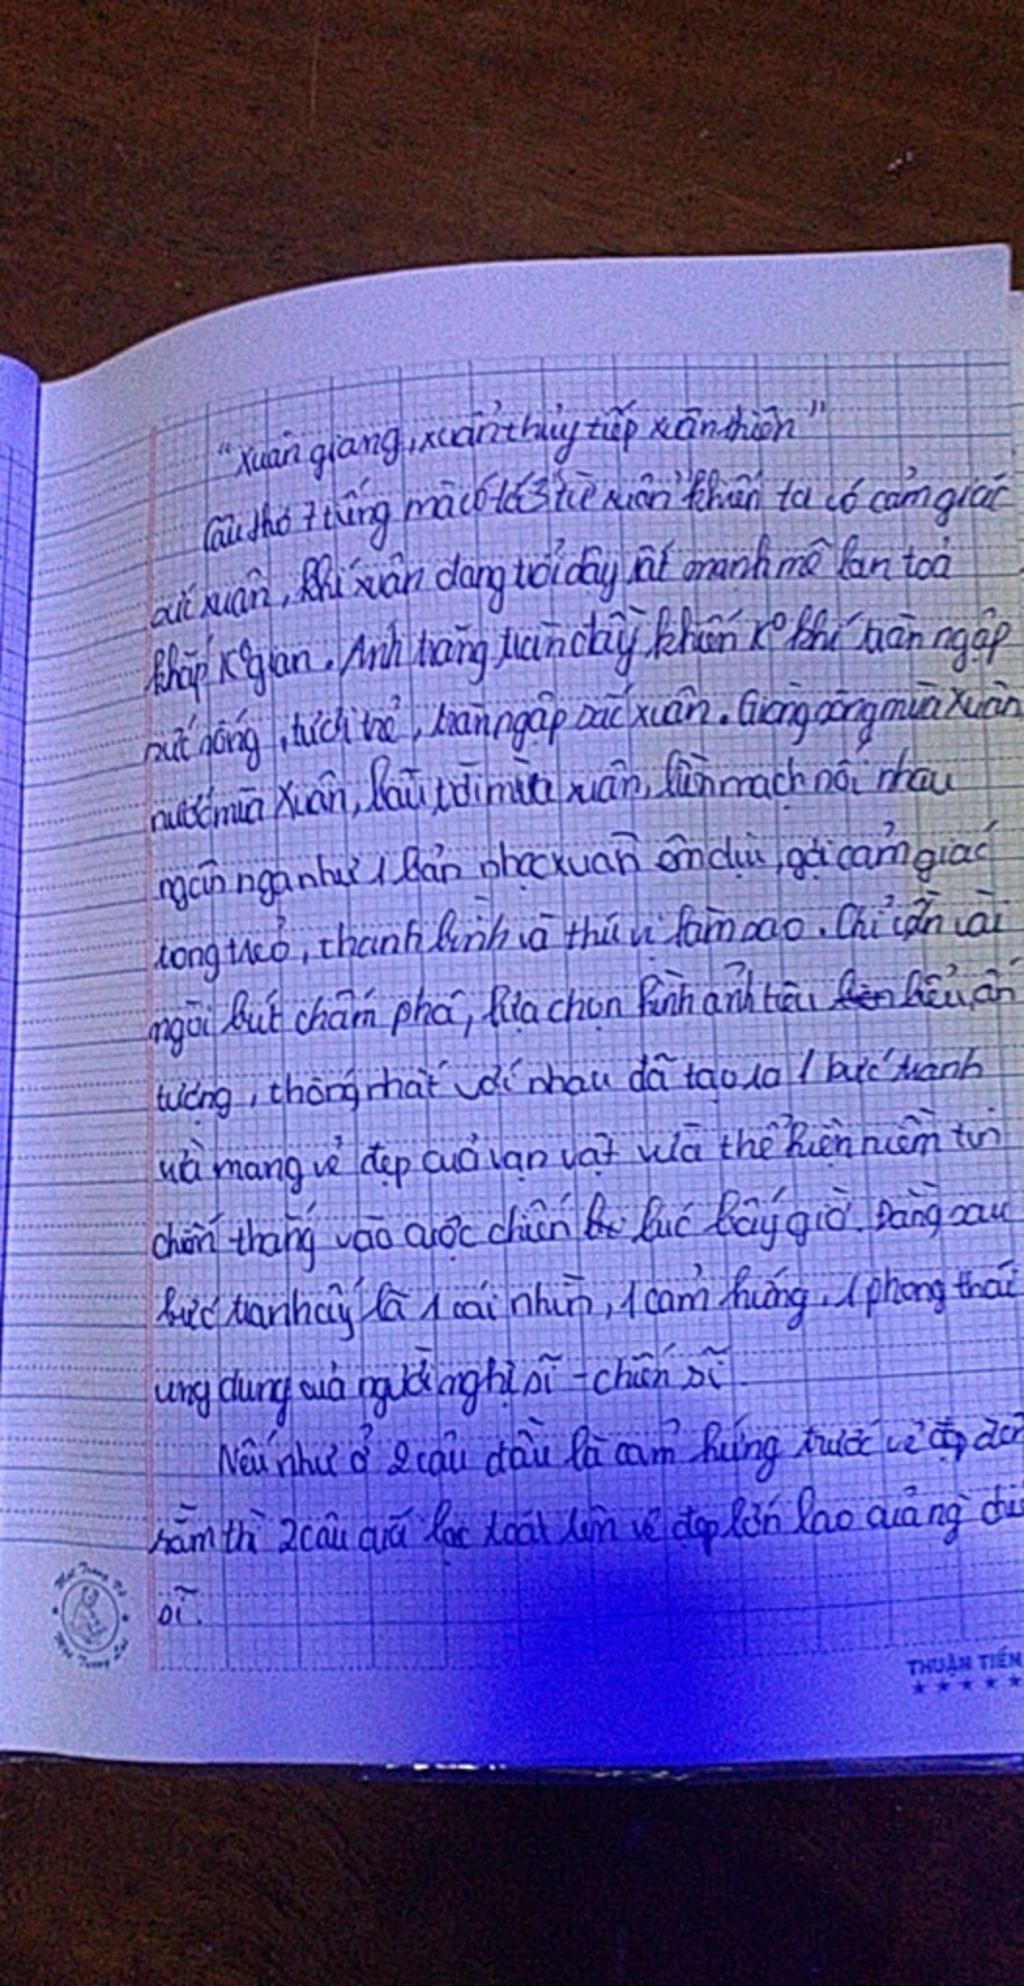 "Xuân giang, xuân thủy tiếp xuân thiên"
Câu thơ 7 tiếng mà có tới 3 từ "xuân" khiến ta có cảm giác
sức xuân, khí xuân đang trỗi dậy rất mạnh mẽ lan toả
khắp K° gian. Ánh trăng tràn đầy khiến K° khí tràn ngập
sức sống, tươi trẻ, tràn ngập sắc xuân. Giòng sông mùa Xuân,
nước mùa Xuân, bầu trời mùa xuân, liền mạch nối nhau
ngân nga như 1 bản nhạc xuân êm dịu, gợi cảm giác
trong trẻo, thanh bình và thú vị làm sao. Chỉ cần vài
ngòi bút chấm phá, lựa chọn hình ảnh tiêu biểu, ấn
tượng, thống nhất với nhau đã tạo ra 1 bức tranh
vừa mang vẻ đẹp của vạn vật vừa thể hiện niềm tin
chiến thắng vào cuộc chiến lúc bấy giờ. Đằng sau
bức tranh ấy là 1 cái nhìn, 1 cảm hứng, 1 phong thái
ung dung của người nghị sĩ - chiến sĩ.
Nếu như ở 2 câu đầu là cảm hứng trước vẻ đẹp đêm
rằm thì 2 câu cuối lại toát lên vẻ đẹp lớn lao của ng
sĩ.
THUẬN TIẾN